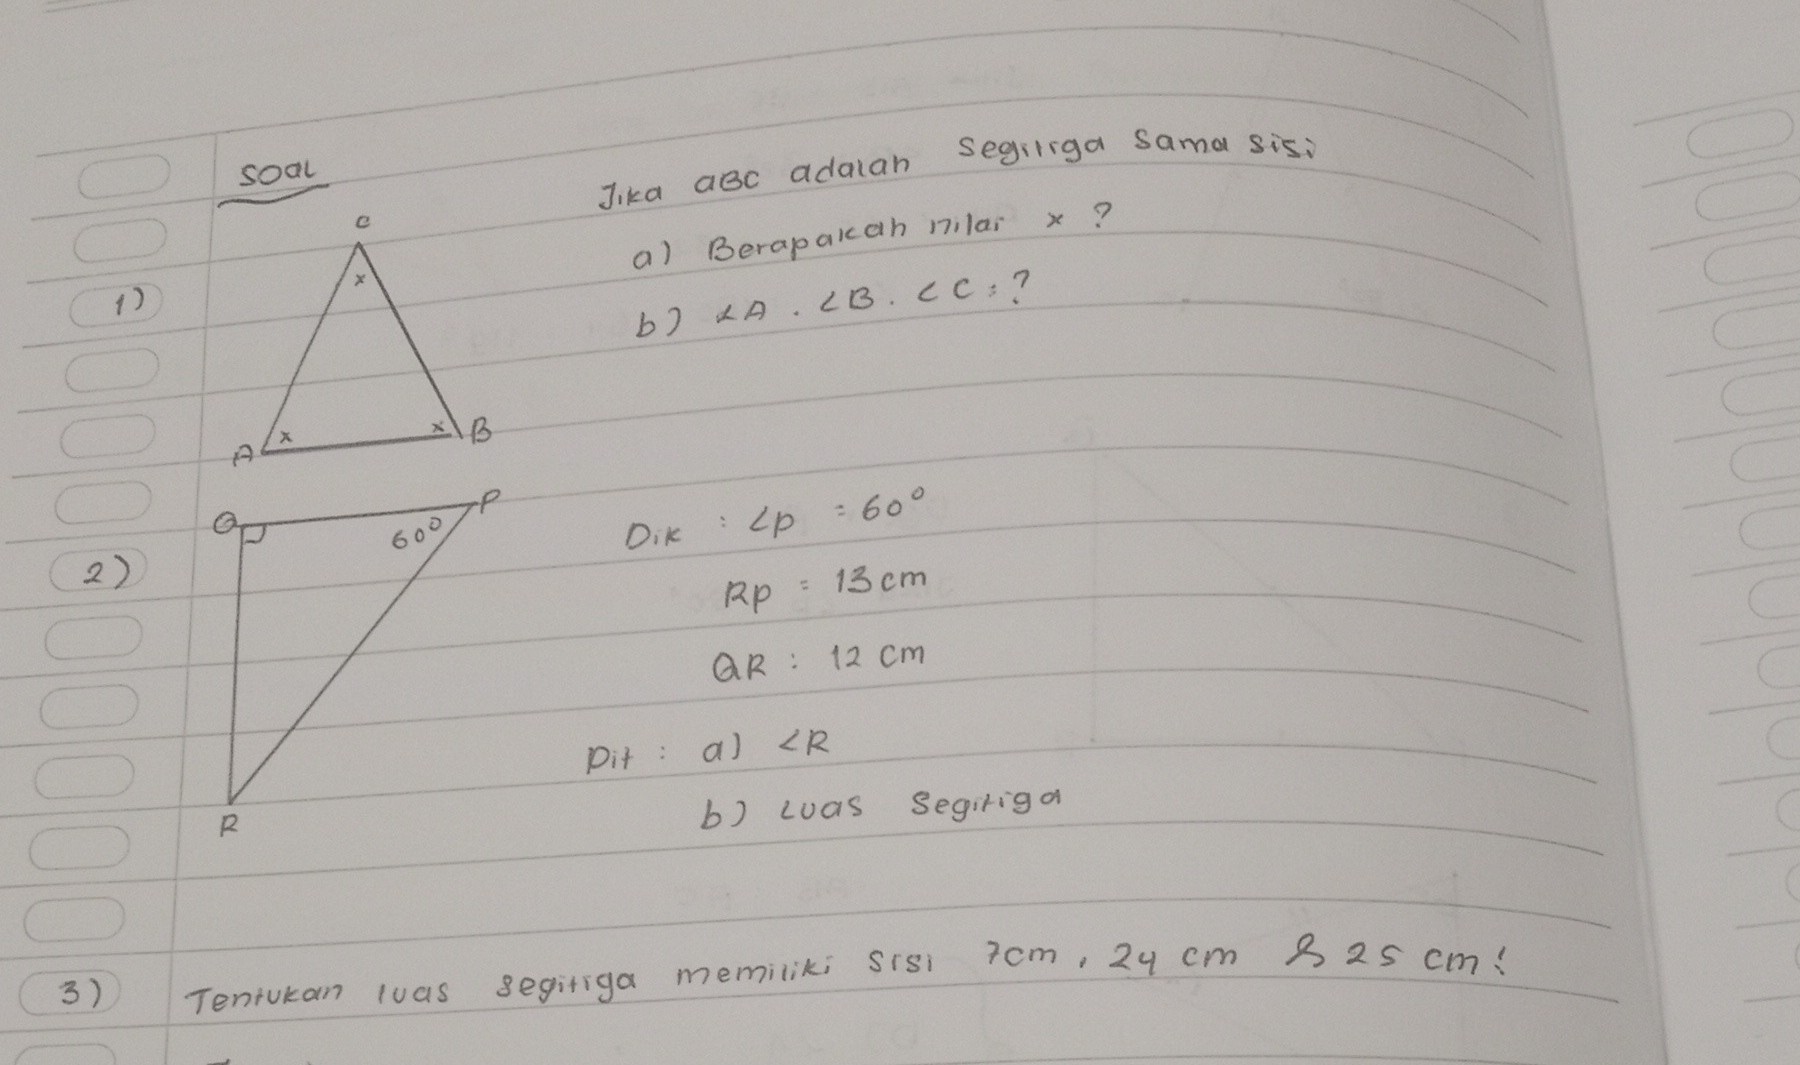 Soal
Jika ABC adalah segitiga sama sisi
a) Berapakah nilai x ?
b) ∠A . ∠B . ∠C = ?
1)
C
x
A
x
x
B
2)
Q
P
60°
R
Dik : ∠P = 60°
RP = 13 cm
QR : 12 cm
Dit : a) ∠R
b) Luas segitiga
3) Tentukan luas segitiga memiliki sisi 7cm, 24 cm & 25 cm!